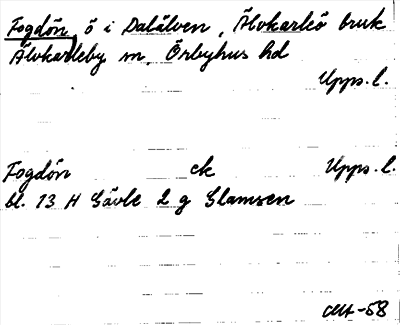 Fogdön, ö i Dalälven, Älvkarleö bruk
Älvkarleby sn, Örbyhus hd
Upps. l.
Fogdön ek Upps. l.
bl. 13 H Gävle 2 g Slamsen
-58